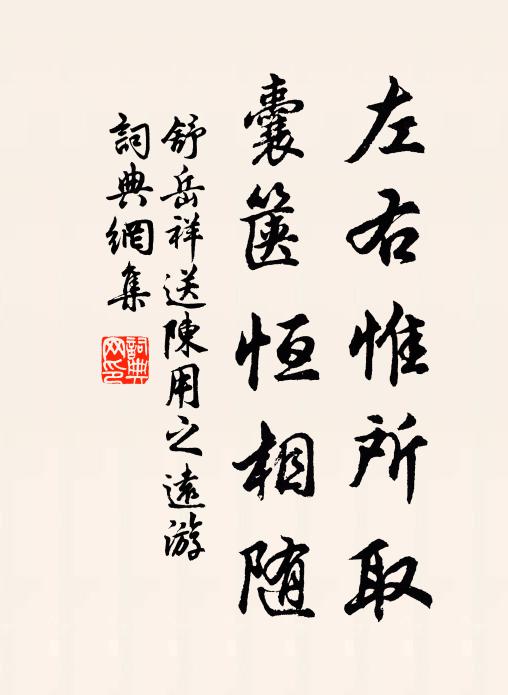 左右惟所取
囊箧恒相随
舒岳祥送陳用之遠游
詞典網集
詞典网印